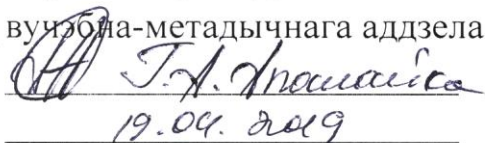 вучэбна-метадычнага аддзела
Г.А. Апанайка
19.04. 2019